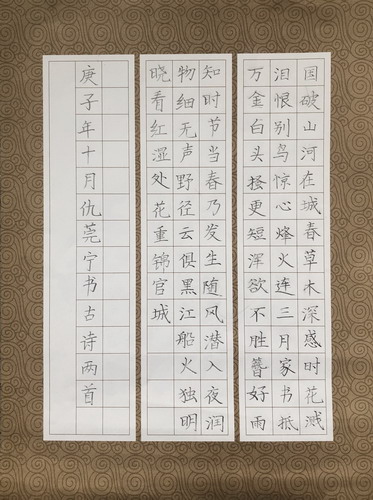 国破山河在城春草木深感时花溅
泪恨别鸟惊心烽火连三月家书抵
万金白头搔更短浑欲不胜簪好雨
知时节当春乃发生随风潜入夜润
物细无声野径云俱黑江船火独明
晓看红湿处花重锦官城
庚子年十月仇莞宁书古诗两首